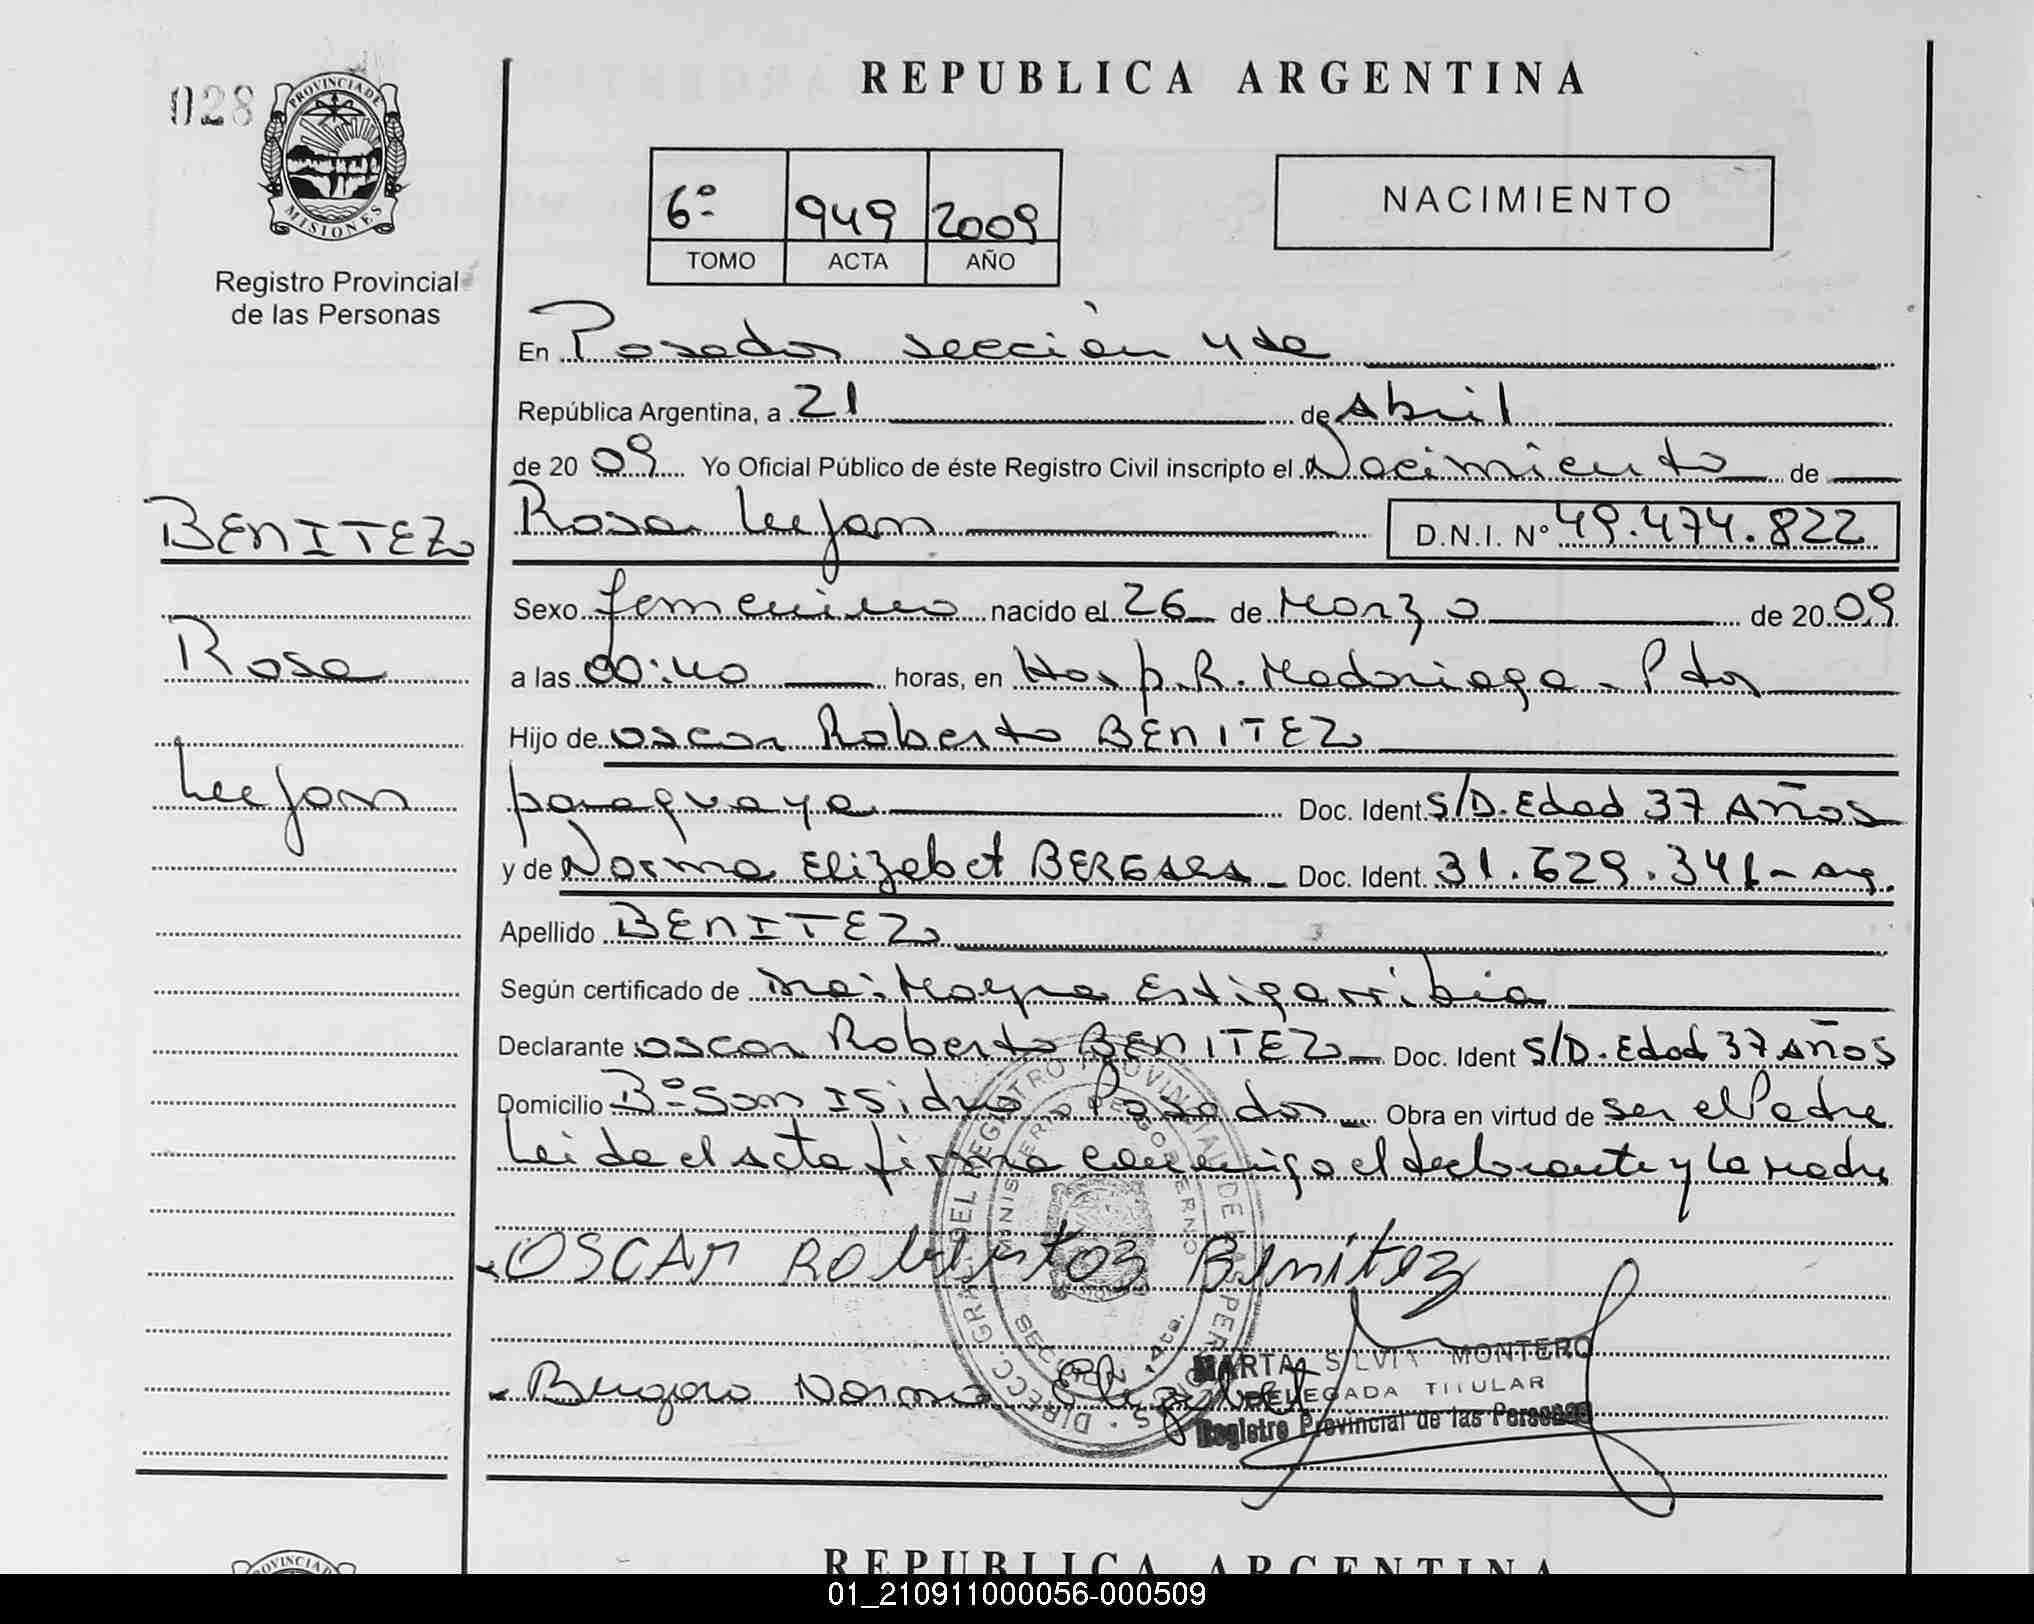 028
PROVINCIA DE
MISIONES
Registro Provincial
de las Personas
BENITEZ
Rosa
Lujan
REPUBLICA ARGENTINA
6º 949 2009
TOMO ACTA AÑO
NACIMIENTO
En Posadas sección 4ta
República Argentina, a 21 de Abril
de 2009 Yo Oficial Público de éste Registro Civil inscripto el Nacimiento de
Rosa Lujan D.N.I. Nº 49.474.822
Sexo femenino nacido el 26 de Marzo de 2009
a las 00:40 horas, en Hosp. R. Madariaga - Pdas
Hijo de Oscar Roberto BENITEZ
paraguaya Doc. Ident. S/D. Edad 37 Años
y de Norma Elizabet Doc. Ident. 31.629.341 - Arg.
Apellido BENITEZ
Según certificado de Mayra Estigarribia
Declarante Oscar Roberto BENITEZ Doc. Ident S/D. Edad 37 Años
Domicilio Bº San Isidro Posadas Obra en virtud de ser el Padre
Leida el acta firma conmigo el declarante y la madre
OSCAR Benitez
Norma
MARTA SILVIA MONTERO
DELEGADA TITULAR
Registro Provincial de las Personas
DIRECC. GRAL. DEL REGISTRO PROVINCIAL DE LAS PERSONAS
MINISTERIO DE GOBIERNO
SECCION 4ta.
REPUBLICA ARGENTINA
01_210911000056-000509